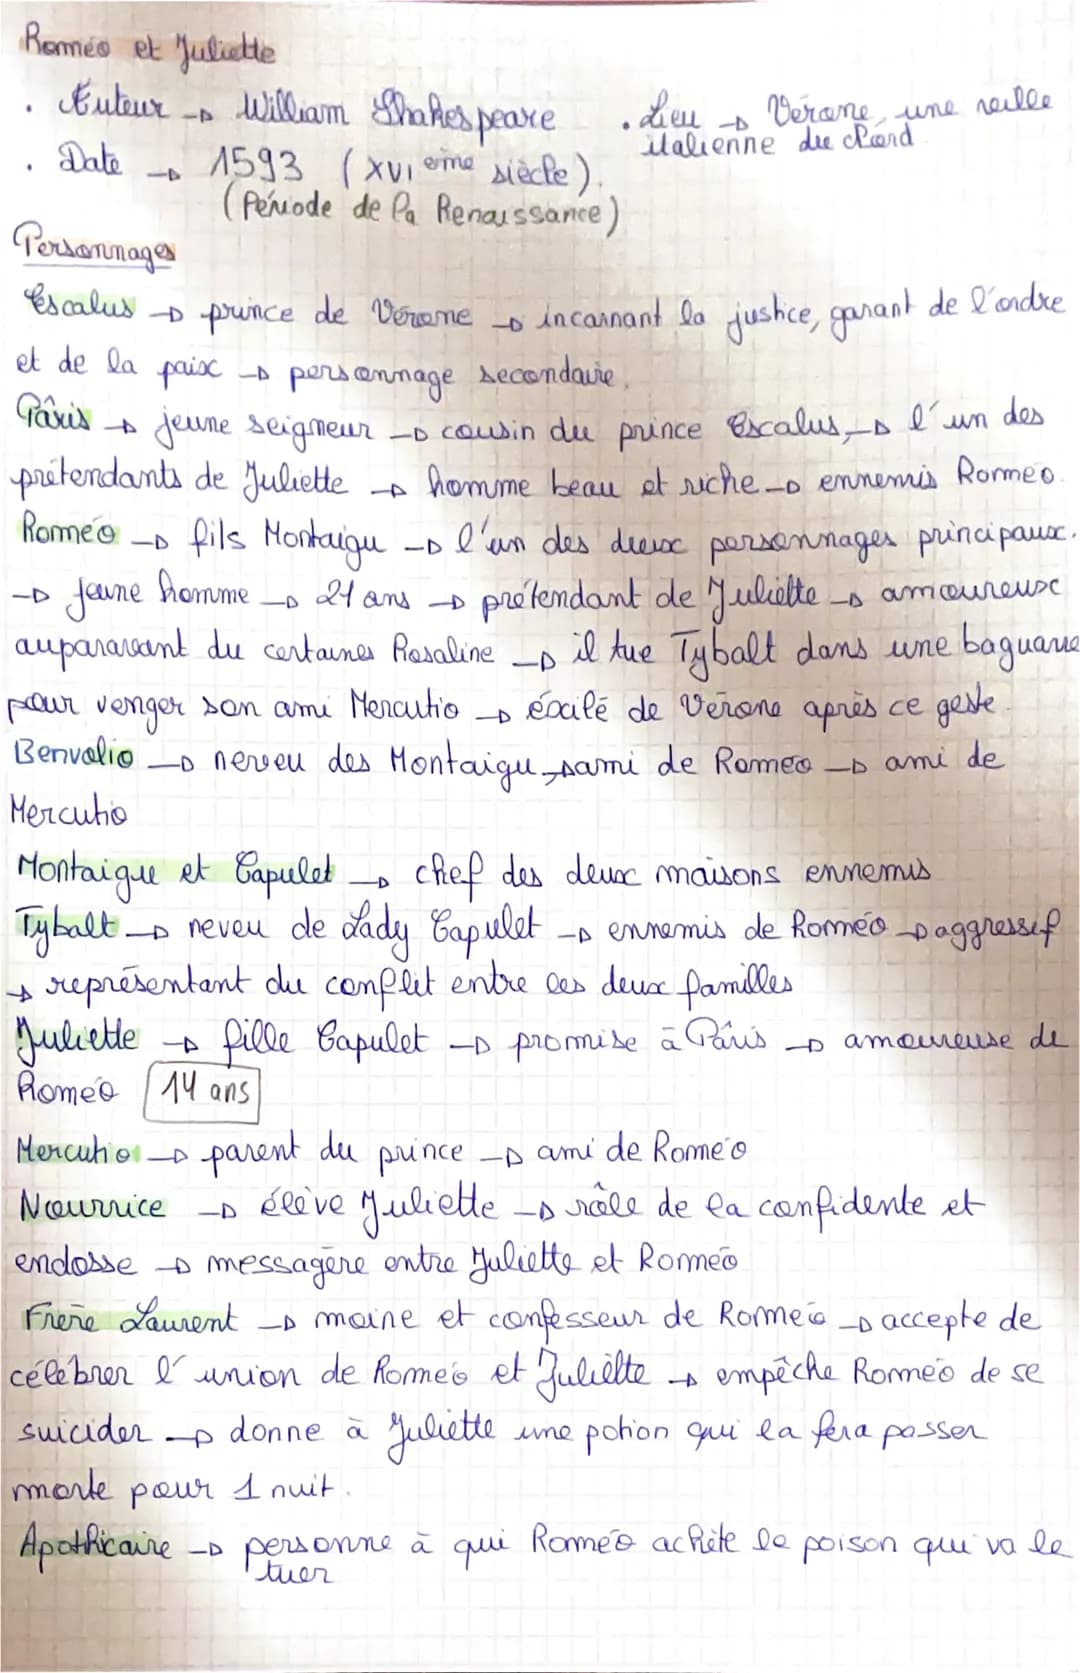 Roméo et Juliette
• Auteur → William Shakespeare
• Lieu → Vérone, une ville
italienne du Nord
• Date → 1593 (XVIème siècle).
(Période de la Renaissance)
Personnages
Escalus → prince de Vérone → incarnant la justice, garant de l'ordre
et de la paix → personnage secondaire.
Pâris → jeune seigneur → cousin du prince Escalus, → l'un des
prétendants de Juliette → homme beau et riche → ennemis Roméo.
Roméo → fils Montaigu → l'un des deux personnages principaux.
→ jeune homme → 21 ans → prétendant de Juliette → amoureux
auparavant du certaines Rosaline → il tue Tybalt dans une baguarre
pour venger son ami Mercutio → éxilé de Vérone après ce geste.
Benvolio → neveu des Montaigu → ami de Roméo → ami de
Mercutio
Montaigue et Capulet → chef des deux maisons ennemis
Tybalt → neveu de Lady Capulet → ennemis de Roméo → aggressif
→ représentant du conflit entre les deux familles
Juliette → fille Capulet → promise à Pâris → amoureuse de
Roméo 14 ans
Mercutio → parent du prince → ami de Roméo
Nourrice → élève Juliette → rôle de la confidente et
endosse → messagère entre Juliette et Roméo
Frère Laurent → moine et confesseur de Roméo → accepte de
célébrer l'union de Roméo et Juliette → empêche Roméo de se
suicider → donne à Juliette une potion qui la fera passer
morte pour 1 nuit.
Apothicaire → personne à qui Roméo achète le poison qui va le
tuer